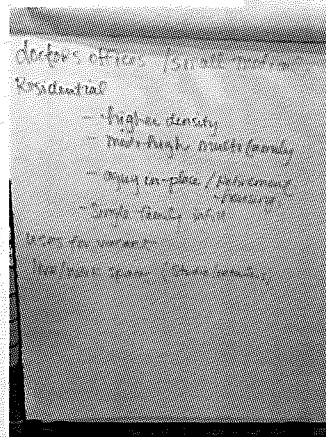 doctors offices / small
Residential
- higher density
- med-high multi family
- aging in-place / Retirement
housing
- Single family infill
uses for vacant
live/work spaces